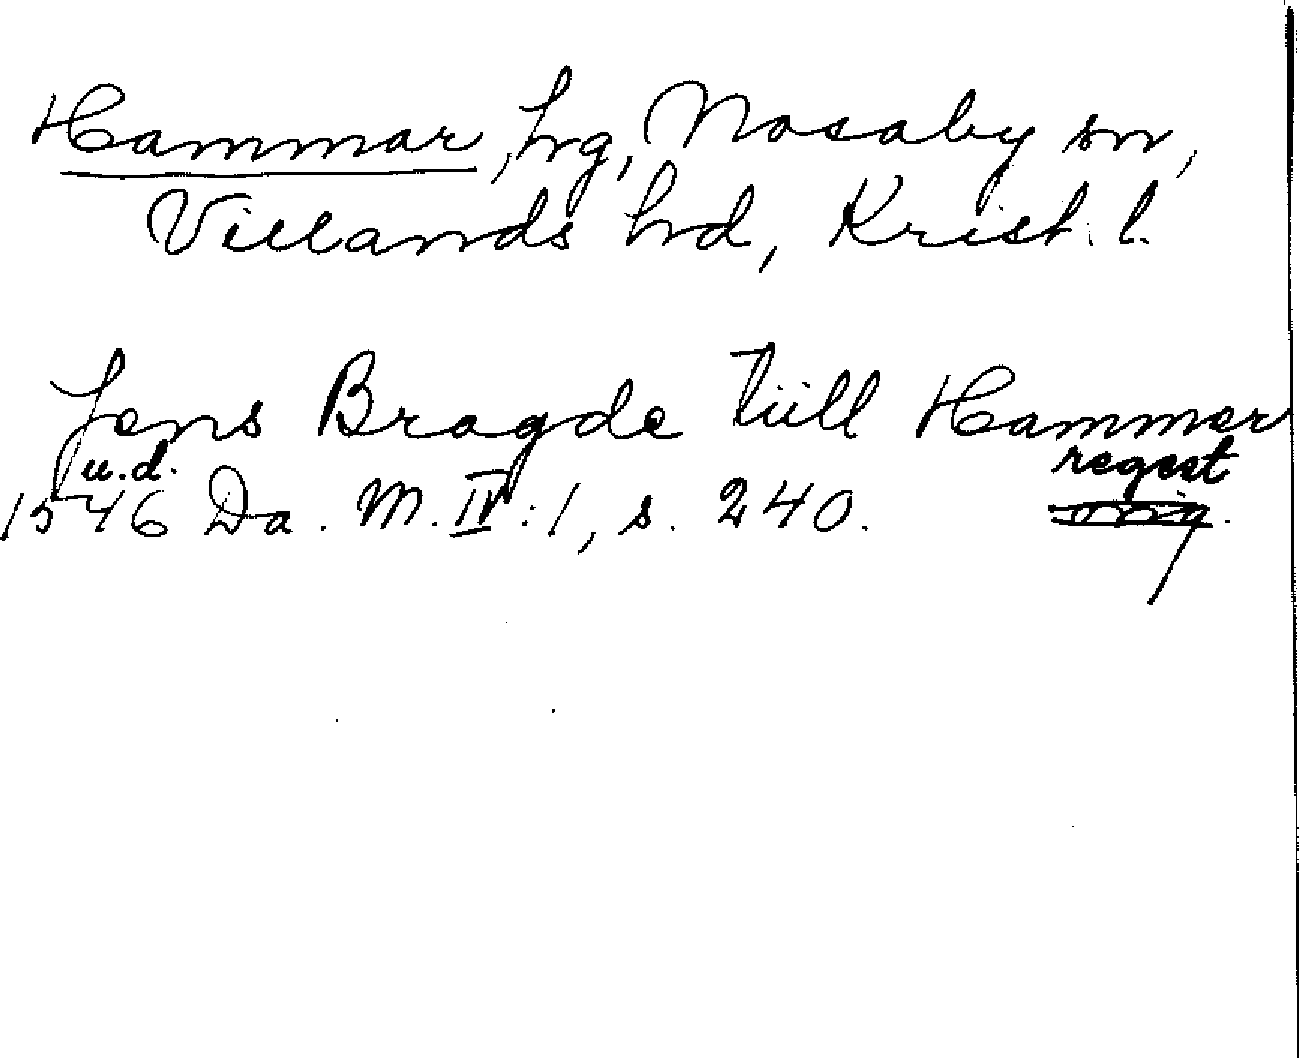 Hammar, hrg, Nosaby sn,
Villands hd, Krist. l.
Jens Bragde tiill Hammer
u.d. regest
1546 Da. M. IV:1, s. 240. orig.